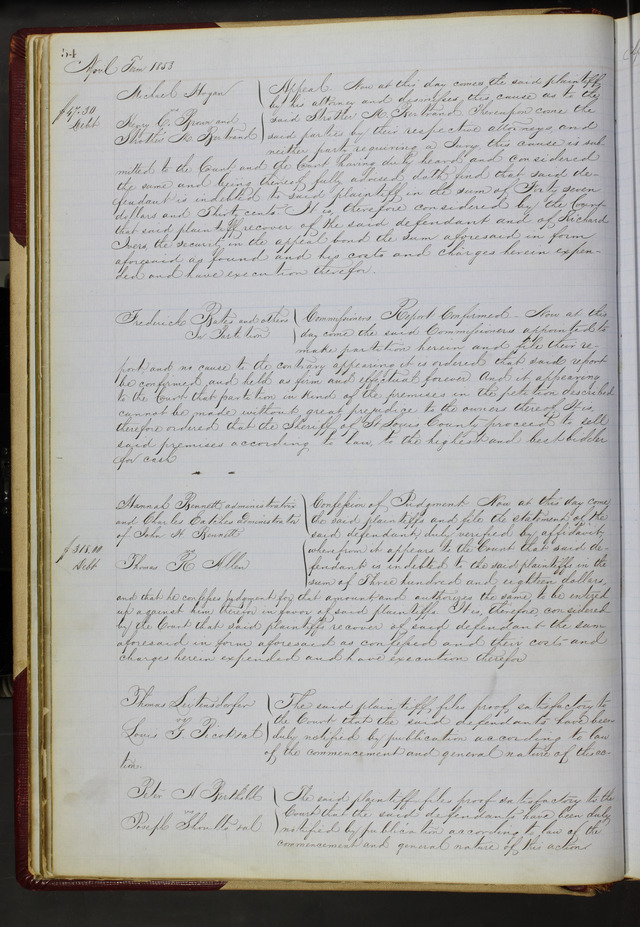 54
April Term 1853
Michael Hogan
vs
Henry C. Brown and
Shotter H. Bertrand
$47.30
Debt
Appeal. Now at this day comes the said plaintiff
by his attorney and dismisses this cause as to the
said Shotter H. Bertrand Thereupon come the
said parties by their respective attorneys, and
neither party requiring a Jury this cause is sub-
mitted to the Court and the Court having duly heard and considered
the same and being thereof fully advised doth find that said de-
fendant is indebted to said plaintiff in the sum of Forty seven
dollars and Thirty cents. It is, therefore considered by the Court
that said plaintiff recover of the said defendant and of Richard
the security in the appeal bond the sum aforesaid in form
aforesaid as found and his costs and charges herein expen-
ded and have execution therefor.
Frederick Bates and others
In Partition
Commissioners Report Confirmed - Now at this
day come the said Commissioners appointed to
make partition herein and file their re-
port, and no cause to the contrary appearing it is ordered that said report
be confirmed and held as firm and effectual forever And it appearing
to the Court that partition in kind of the premises in the petition described
cannot be made without great prejudice to the owners thereof It is,
therefore ordered that the Sheriff of St Louis County proceed to sell
said premises according to law, to the highest and best bidder
for cash
Hannah Bennett administratrix
and Charles administrator
of John H. Bennett
vs
Thomas K Allen
$318.00
Debt
Confession of Judgment Now at this day come
the said plaintiffs and file the statement of the
said defendant duly verified by affidavit,
wherefrom it appears to the Court that said de-
fendant is indebted to the said plaintiffs in the
sum of Three hundred and eighteen dollars,
and that he confesses Judgment for that amount and authorizes the same to be entered
up against him therein in favor of said plaintiffs. It is, therefore considered
by the Court that said plaintiffs recover of said defendant the sum
aforesaid in form aforesaid as confessed and their costs and
charges herein expended and have execution therefor
Thomas Leitensdorfer
vs
Louis F. et al
The said plaintiff files proof satisfactory to
the Court that the said defendants have been
duly notified by publication according to law
of the commencement and general nature of this ac-
tion.
Peter A Berthold
vs
Joseph et al
The said plaintiff files proof satisfactory to the
Court that the said defendants have been duly
notified by publication according to law of the
commencement and general nature of this action